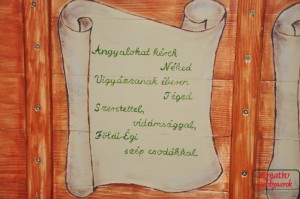 Angyalokat kérek
Néked
Vigyázzanak éberen
Téged
Szeretettel,
vidámsággal,
Földi-Égi
szép csodákkal